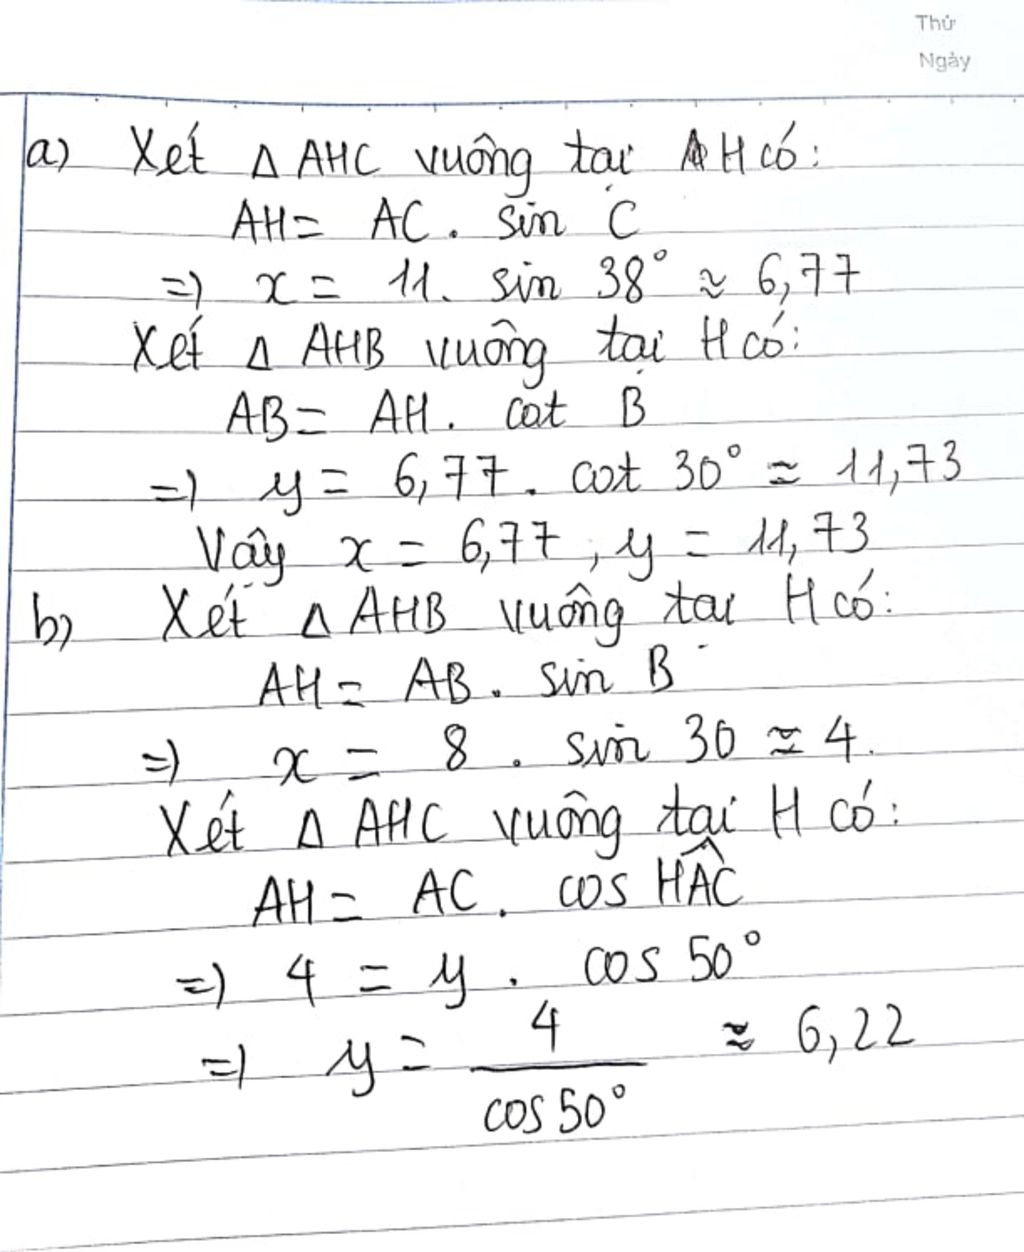 Thứ
Ngày
a) Xét Δ AHC vuông tại H có:
AH = AC . sin C
=> x = 11 . sin 38° ≈ 6,77
Xét Δ AHB vuông tại H có:
AB = AH . cot B
=> y = 6,77 . cot 30° ≈ 11,73
Vậy x = 6,77 , y = 11,73
b) Xét Δ AHB vuông tại H có:
AH = AB . sin B
=> x = 8 . sin 30 ≈ 4.
Xét Δ AHC vuông tại H có:
AH = AC . cos HÂC
=> 4 = y . cos 50°
=> y = 4 / cos 50° ≈ 6,22